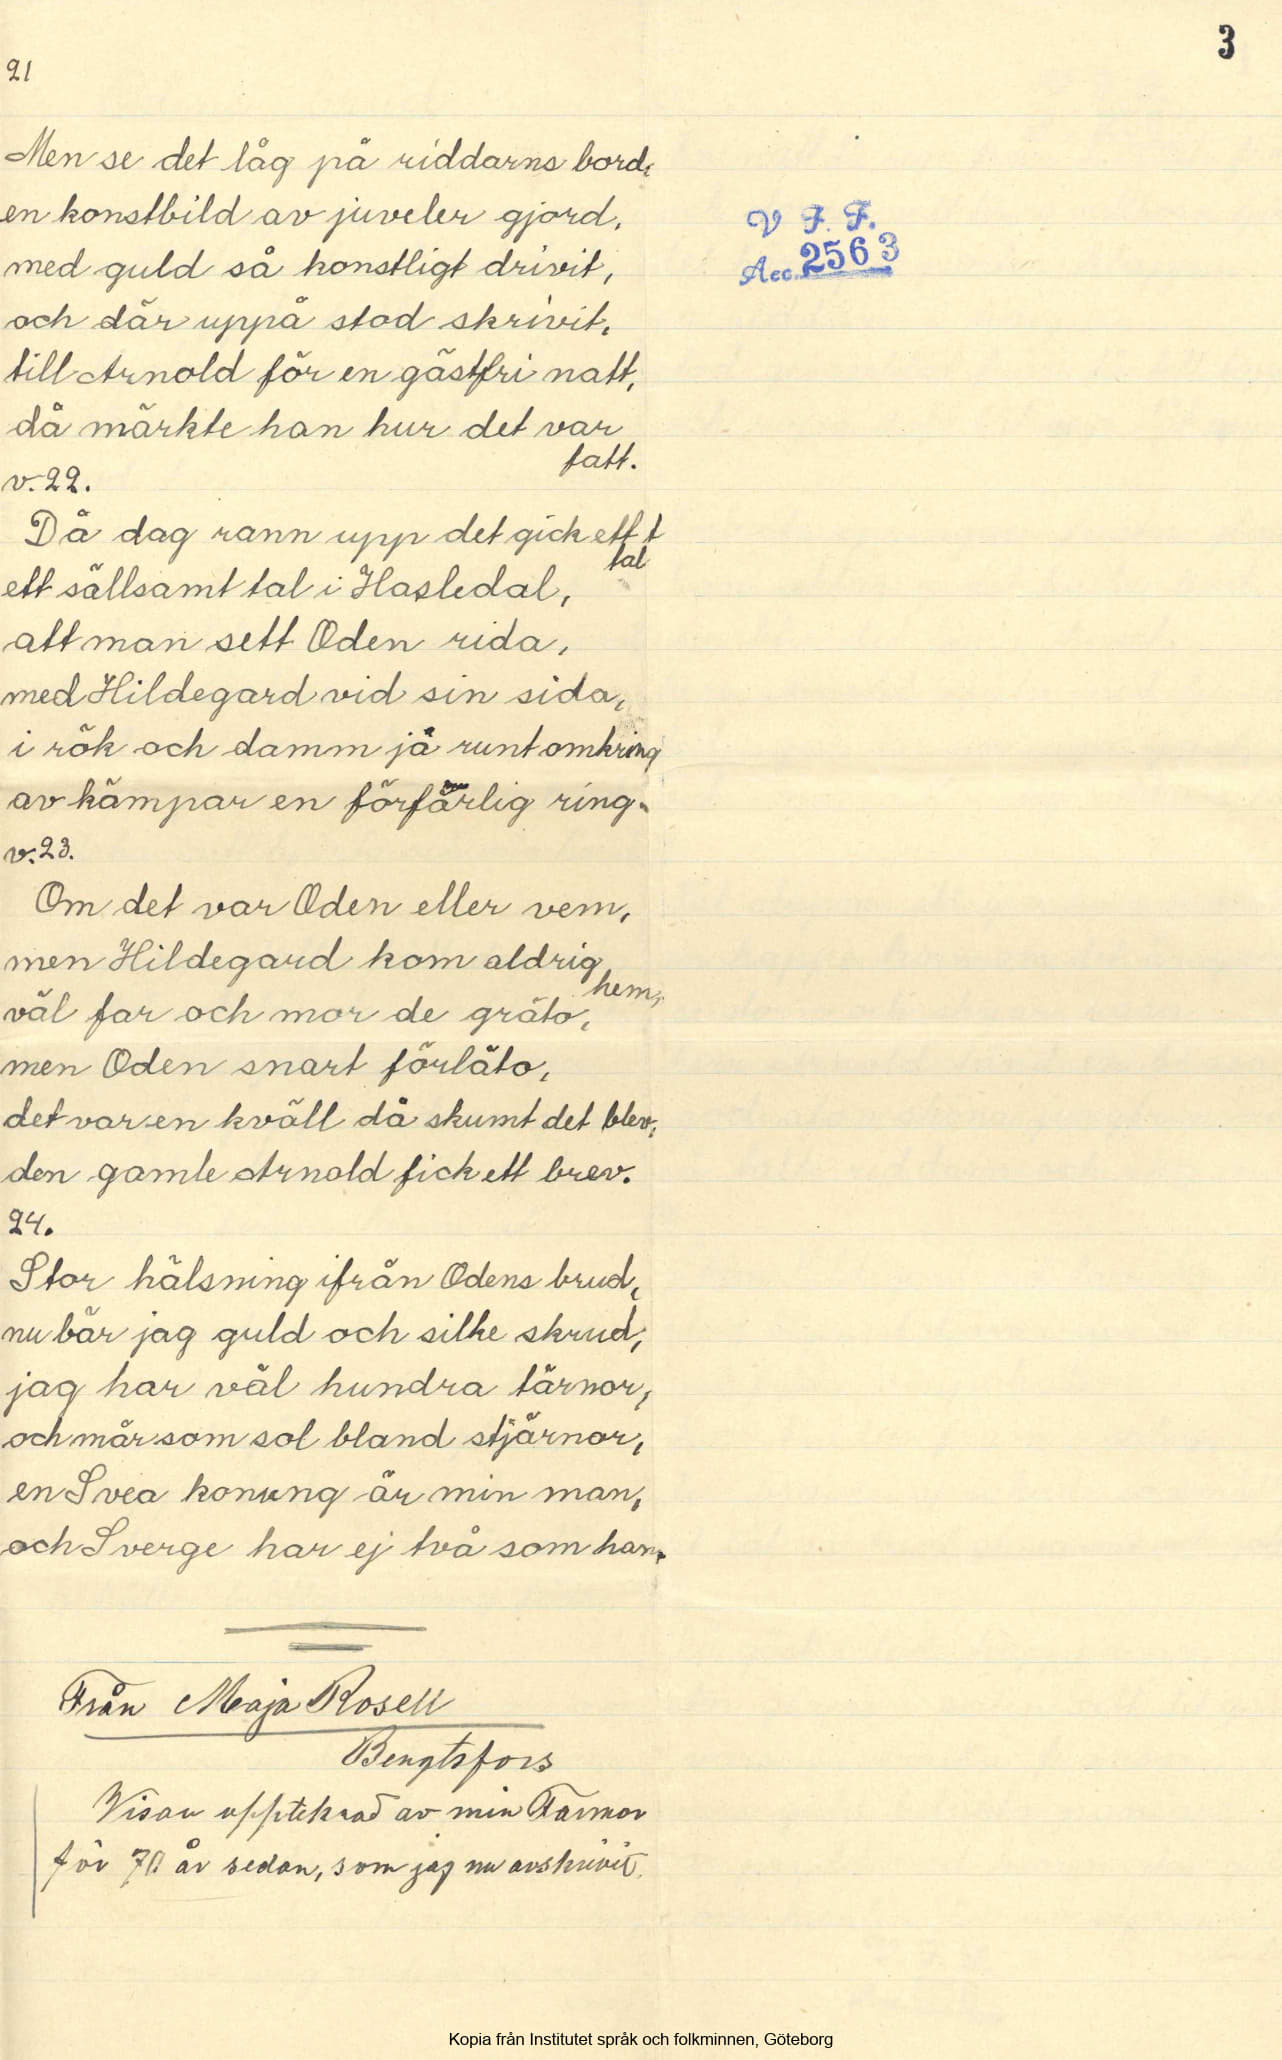 3
21
Men se det låg på riddarns bord,
en konstbild av juveler gjord,
med guld så konstligt drivit,
och där uppå stod skrivit,
till Arnold för en gästfri natt,
då märkte han hur det var
fatt.
V F. F.
Acc. 2563
v. 22.
Då dag rann upp det gick ett t
tal
ett sällsamt tal i Hasledal,
att man sett Oden rida,
med Hildegard vid sin sida,
i rök och damm jå runt omkring
av kämpar en förfärlig ring.
v. 23.
Om det var Oden eller vem,
men Hildegard kom aldrig
hem,
väl far och mor de gräto,
men Oden snart förläto,
det var en kväll då skumt det blev,
den gamle Arnold fick ett brev.
24.
Stor hälsning ifrån Odens brud,
nu bär jag guld och silke skrud,
jag har väl hundra tärnor,
och mår som sol bland stjärnor,
en Svea konung är min man,
och Sverge har ej två som han.
Från Maja Rosell
Bengtsfors
Visan uppteknad av min Farmor
för 70 år sedan, som jag nu avskrivit.
Kopia från Institutet språk och folkminnen, Göteborg